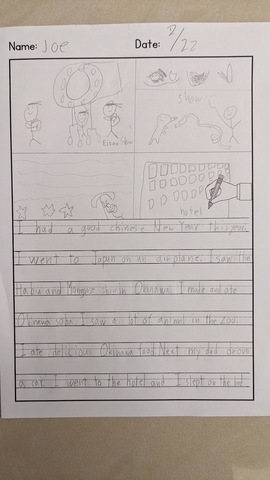 Name: Joe Date: 2/22
Show
hotel
I had a good chinese New Year this year.
I went to Japan on an airplane. I saw the
Habu and Mongoose show in Okinawa. I made and ate
Okinawa soba. I saw a lot of animl in the zoo.
I ate delicious Okinawa food. Next my dad drove
a car. I went to the hotel and I slept on the bed.